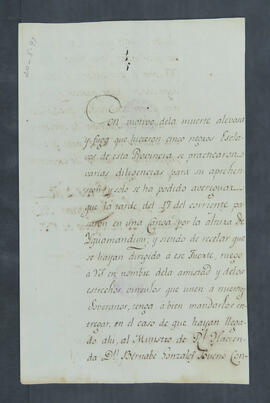 Con motivo dela muerte alevosa
y fuga que hicieron cinco negros Escla-
vos de esta Provincia, se practicaron
varias diligencias para su aprehen-
sion, y solo se ha podido averiguar
que la tarde del 17 del corriente pa-
saron en una Canoa por la altura de
Yquamandiyu, y siendo de recelar que
se hayan dirigido a ese Fuerte, ruego
a VS en nombre dela amistad y delos
estrechos vinculos que unen a nuestros
Soberanos, tenga à bien mandarlos en-
tregar, en el caso de que hayan llega-
do ahi, al Ministro de Rl. Hacien-
da Dn. Bernabe Gonzalez Bueno Con-